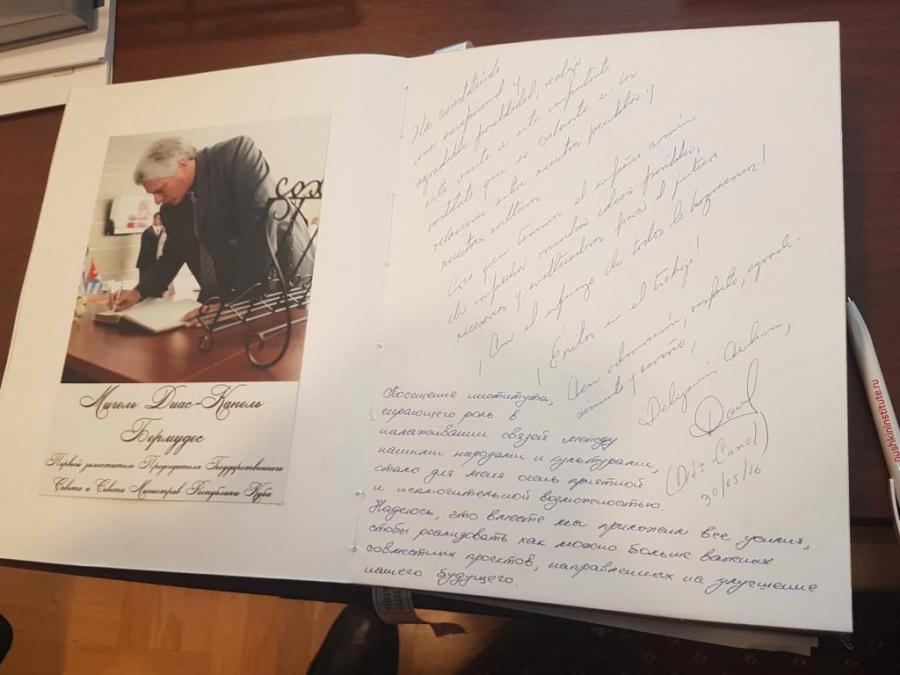 Мигель Диас-Канель
Бермудес
Первый заместитель Председателя Государственного
Совета и Совета Министров Республики Куба
Ha constituido
una excepcional y
agradable posibilidad, realizar
esta visita a este importante
instituto que es baluarte en las
relaciones entre nuestros pueblos y
nuestras culturas.
Creo que tenemos el empeño común
de impulsar muchas ideas posibles,
necesarias y para el futuro.
¡Con el esfuerzo de todos lo lograremos!
¡Éxitos en el trabajo!
Con admiración, respeto, agrade-
cimiento y cariño,
Delegación Cubana,
(Díaz Canel)
30/05/16
Посещение института,
играющего роль в
налаживании связей между
нашими народами и культурами,
стало для меня очень приятной
и исключительной возможностью.
Надеюсь, что вместе мы приложим все усилия,
чтобы реализовать как можно больше важных
совместных проектов, направленных на улучшение
нашего будущего.
pushkininstitute.ru